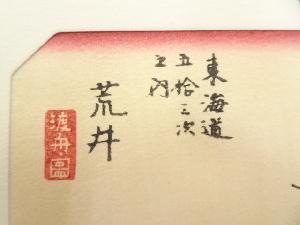 東海道
五拾三次
之内
荒井
渡舟ノ図